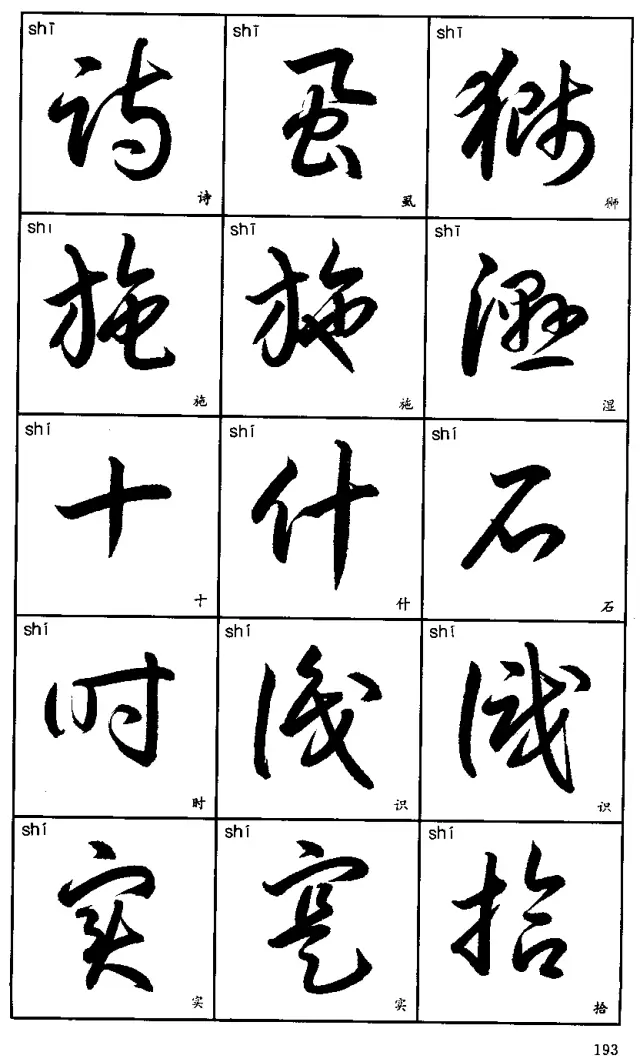 shī shī shī
诗 虱 狮
诗 虱 狮
shī shī shī
施 施 湿
施 施 湿
shí shí shí
十 什 石
十 什 石
shí shí shí
时 识 识
时 识 识
shí shí shí
实 实 拾
实 实 拾
193